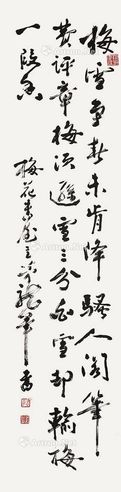 梅雪争春未肯降骚人阁笔
费评章梅须逊雪三分白雪却输梅
一段香